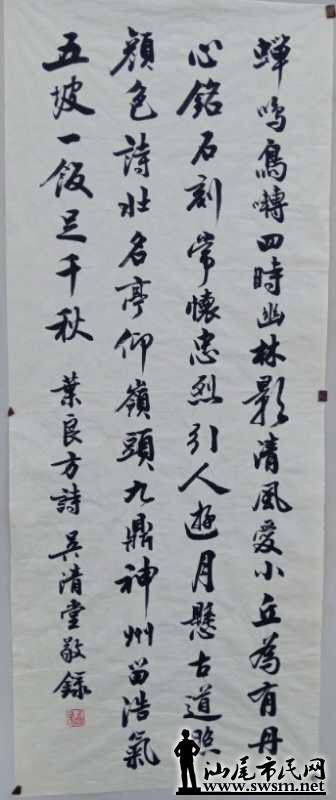 蟬鳴鳥囀四時幽林影清風愛小丘為有丹
心銘石刻常懷忠烈引人遊月懸古道照
顏色詩壯名亭仰嶺頭九鼎神州留浩氣
五坡一飯足千秋 葉良方詩 吳清堂敬錄
汕尾市民网
www.swsm.net